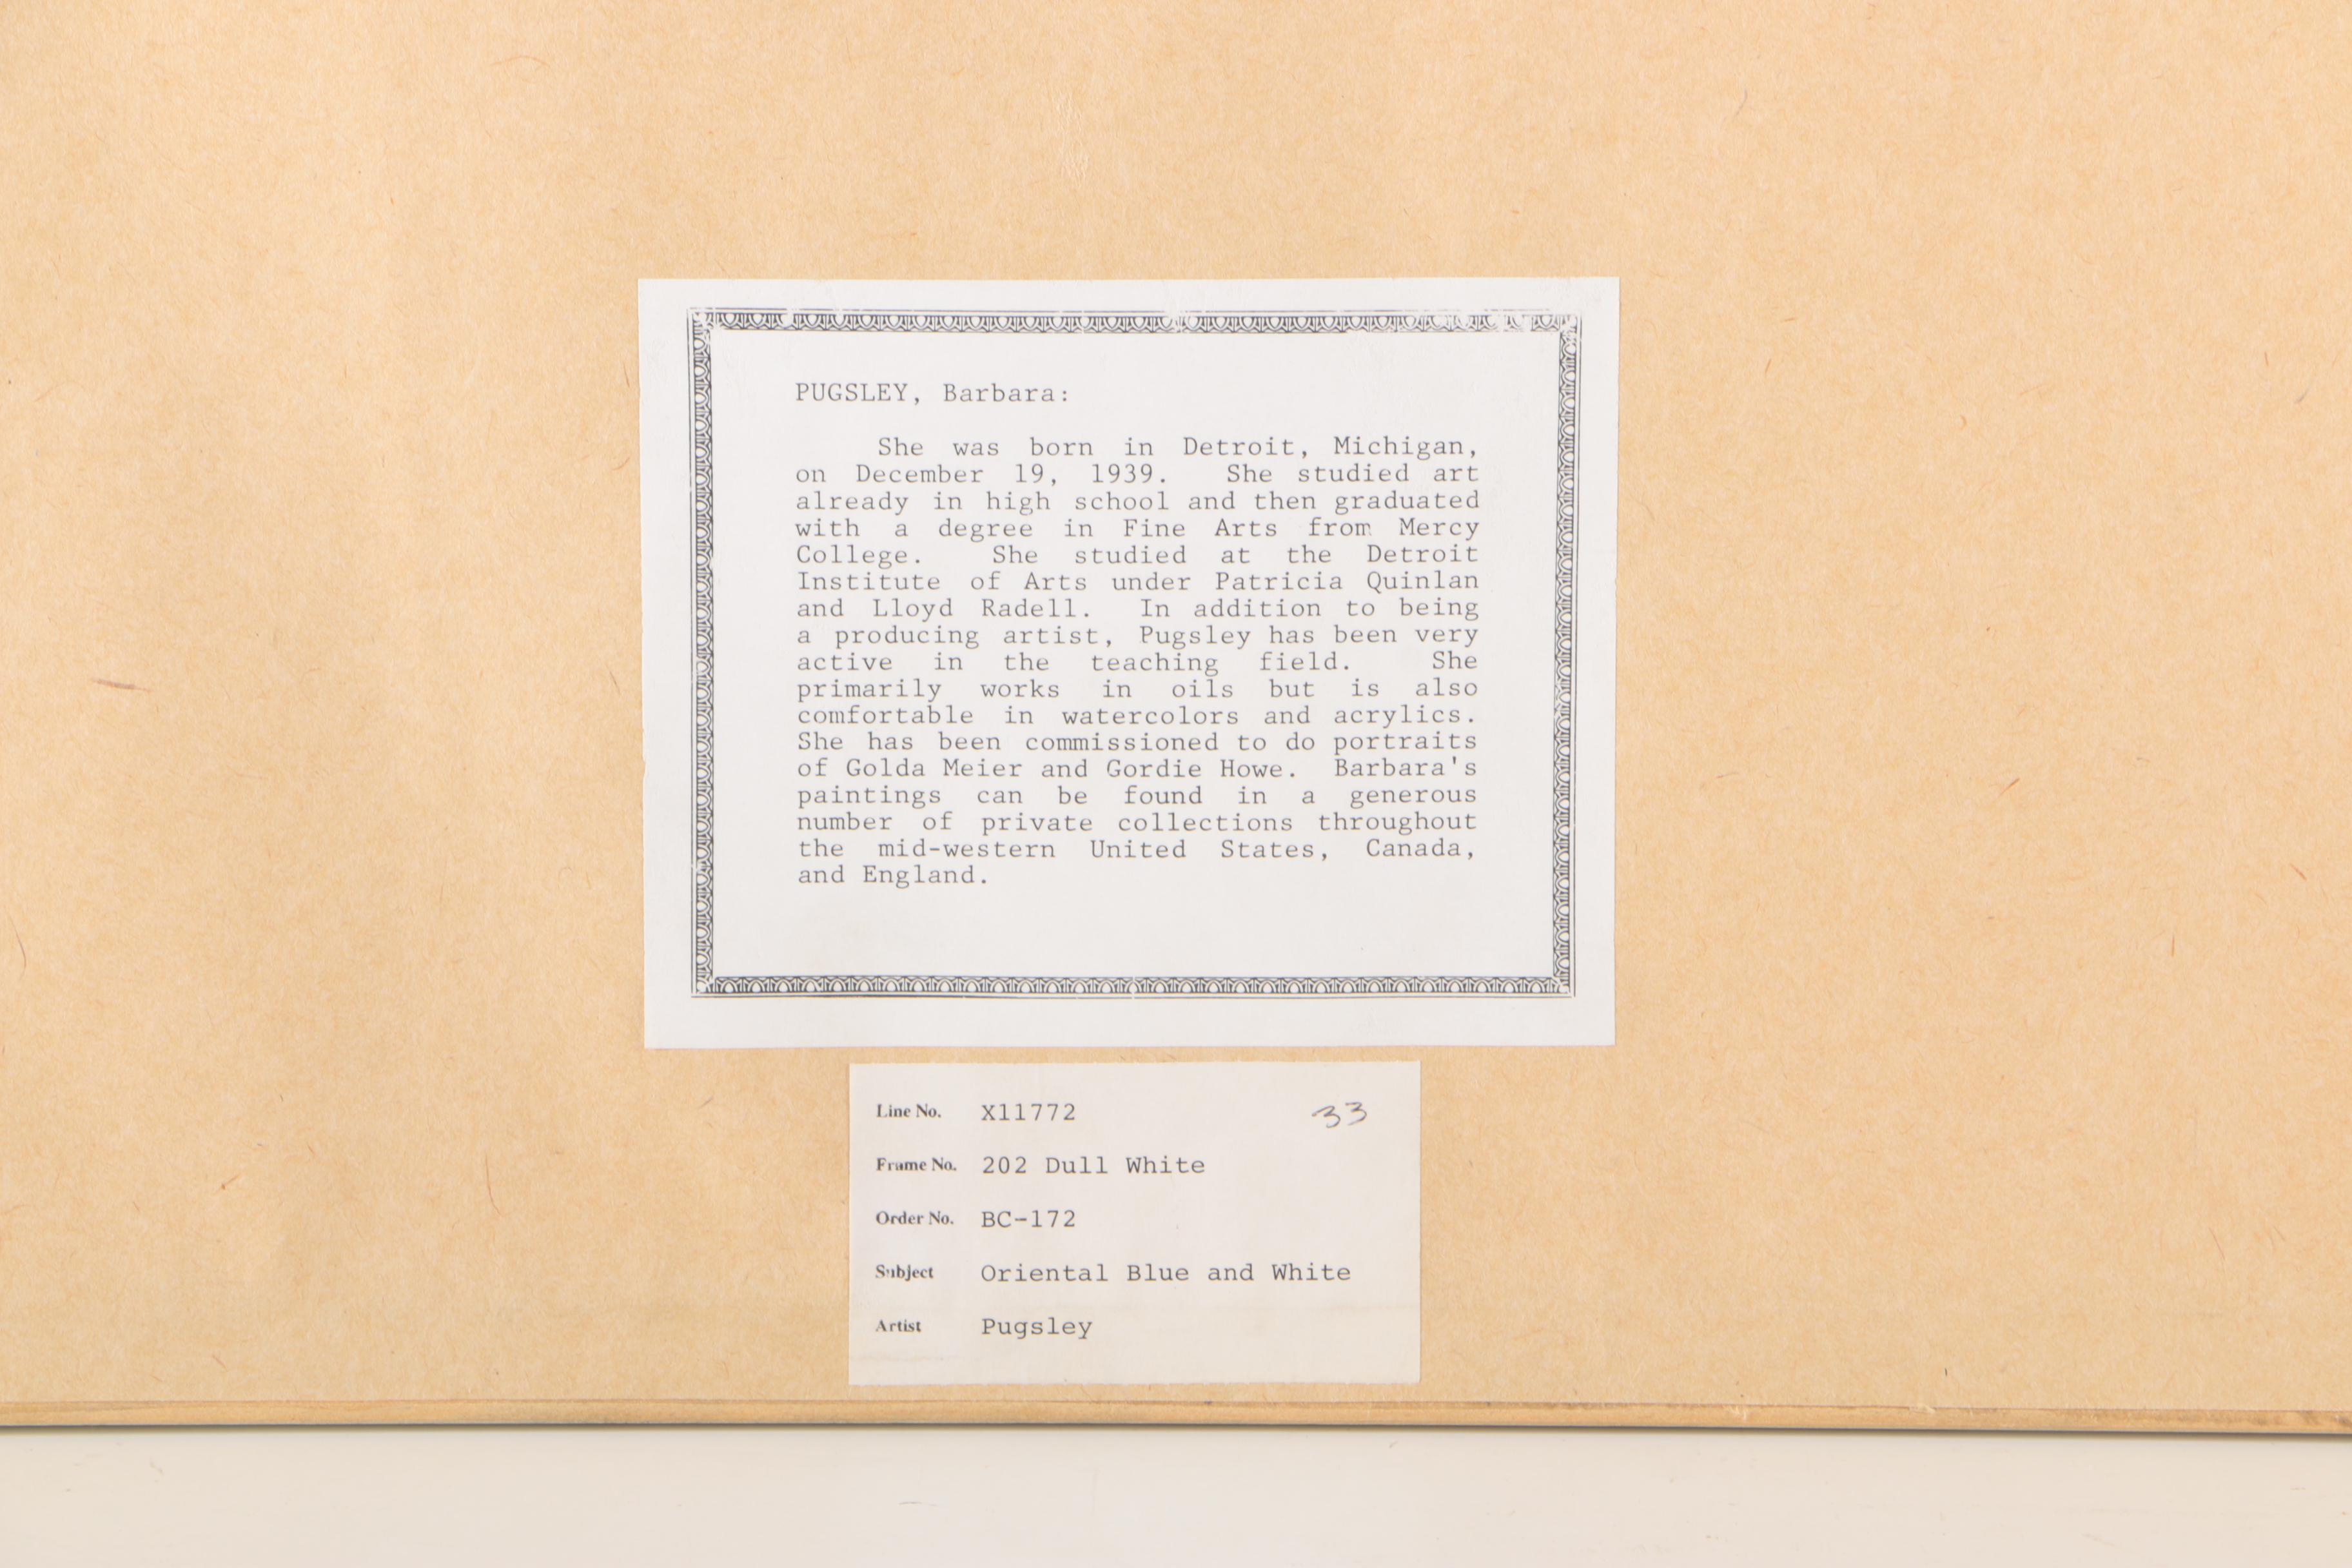 PUGSLEY, Barbara:
She was born in Detroit, Michigan,
on December 19, 1939. She studied art
already in high school and then graduated
with a degree in Fine Arts from Mercy
College. She studied at the Detroit
Institute of Arts under Patricia Quinlan
and Lloyd Radell. In addition to being
a producing artist, Pugsley has been very
active in the teaching field. She
primarily works in oils but is also
comfortable in watercolors and acrylics.
She has been commissioned to do portraits
of Golda Meier and Gordie Howe. Barbara's
paintings can be found in a generous
number of private collections throughout
the mid-western United States, Canada,
and England.
Line No. X11772 33
Frame No. 202 Dull White
Order No. BC-172
Subject Oriental Blue and White
Artist Pugsley